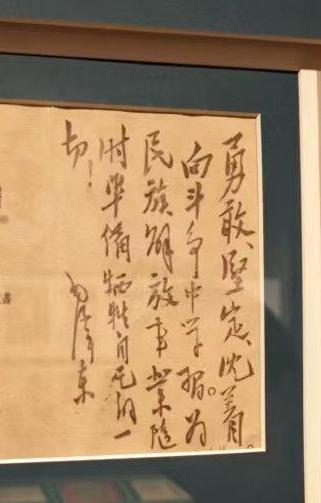 勇敢、堅定、沈着。
向斗争中学習。为
民族解放事業随
时準備牺牲自己的一
切！
毛泽东